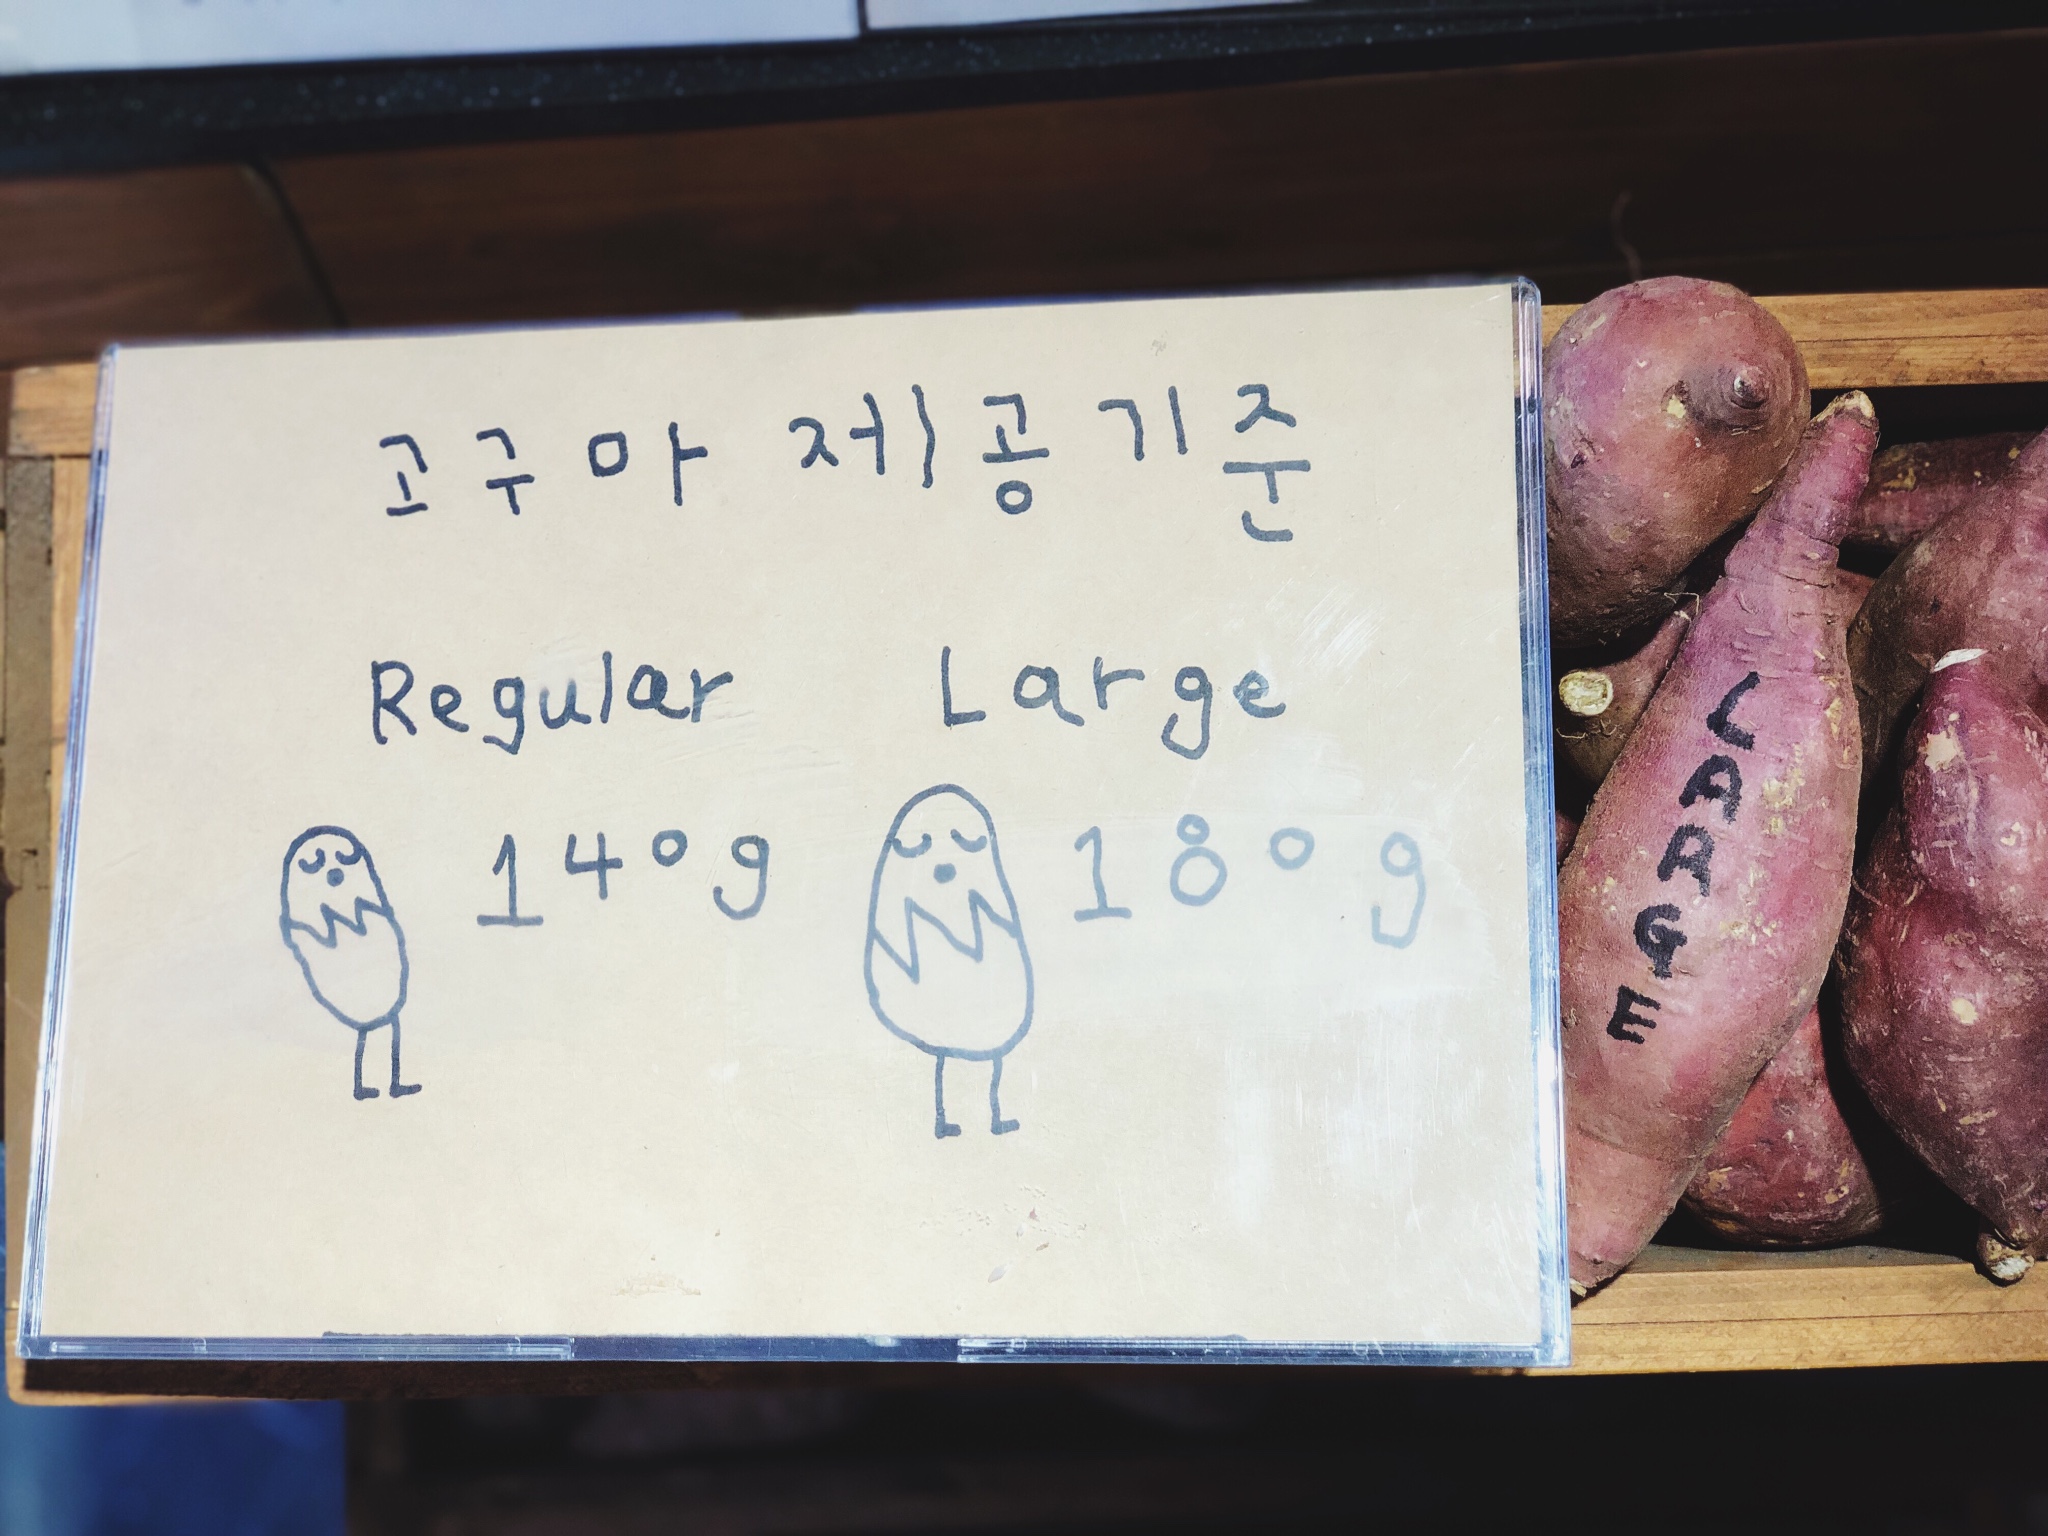 고구마 제공기준
Regular Large
140g 180g
LARGE